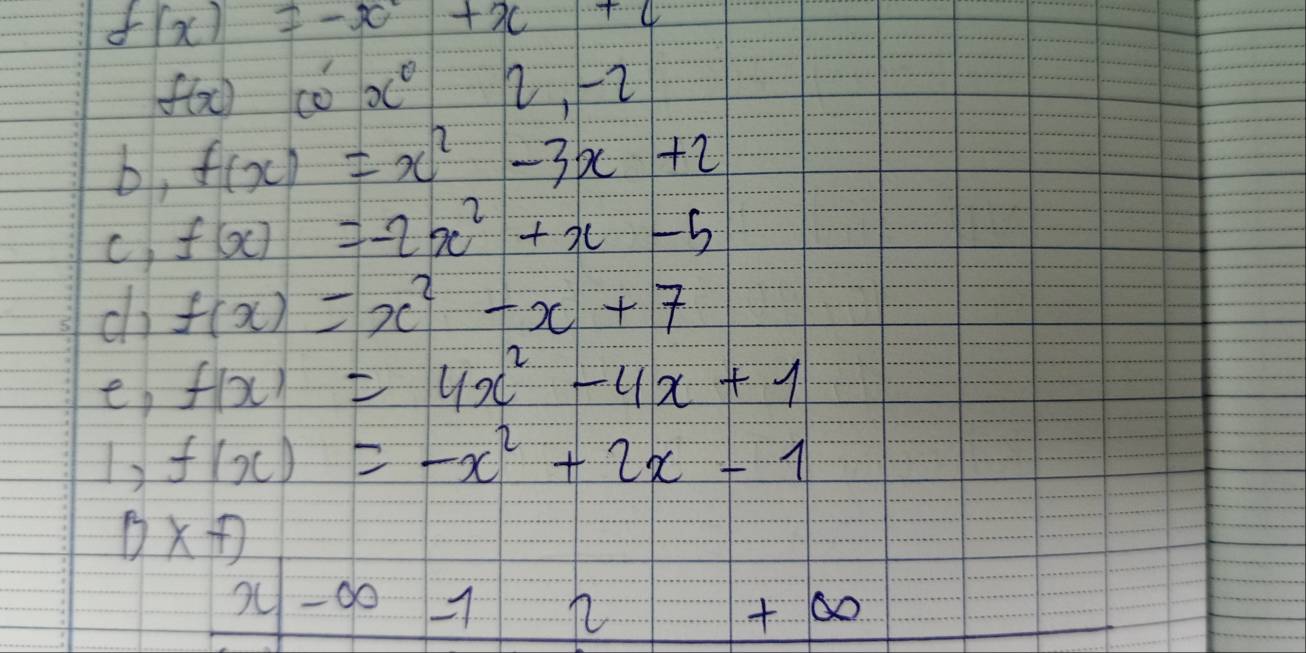 f(x) = -x² + x +
f(x) có x⁰ 2, -2
b, f(x) = x² - 3x + 2
c, f(x) = -2x² + x - 5
d, f(x) = x² - x + 7
e, f(x) = 4x² - 4x + 1
1, f(x) = -x² + 2x - 1
BXD
x -∞ -1 2 +∞